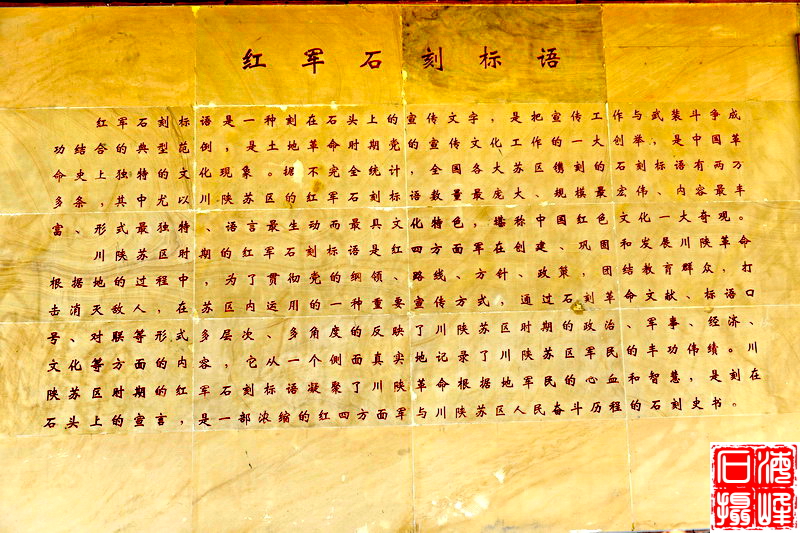 红军石刻标语
红军石刻标语是一种刻在石头上的宣传文字，是把宣传工作与武装斗争成
功结合的典型范例，是土地革命时期党的宣传文化工作的一大创举，是中国革
命史上独特的文化现象。据不完全统计，全国各大苏区镌刻的石刻标语有两万
多条，其中尤以川陕苏区的红军石刻标语数量最庞大、规模最宏伟、内容最丰
富、形式最独特、语言最生动而最具文化特色，堪称中国红色文化一大奇观。
川陕苏区时期的红军石刻标语是红四方面军在创建、巩固和发展川陕革命
根据地的过程中，为了贯彻党的纲领、路线、方针、政策，团结教育群众，打
击消灭敌人，在苏区内运用的一种重要宣传方式，通过石刻革命文献、标语口
号、对联等形式多层次、多角度的反映了川陕苏区时期的政治、军事、经济、
文化等方面的内容，它从一个侧面真实地记录了川陕苏区军民的丰功伟绩。川
陕苏区时期的红军石刻标语凝聚了川陕革命根据地军民的心血和智慧，是刻在
石头上的宣言，是一部浓缩的红四方面军与川陕苏区人民奋斗历程的石刻史书。
海峰
石摄